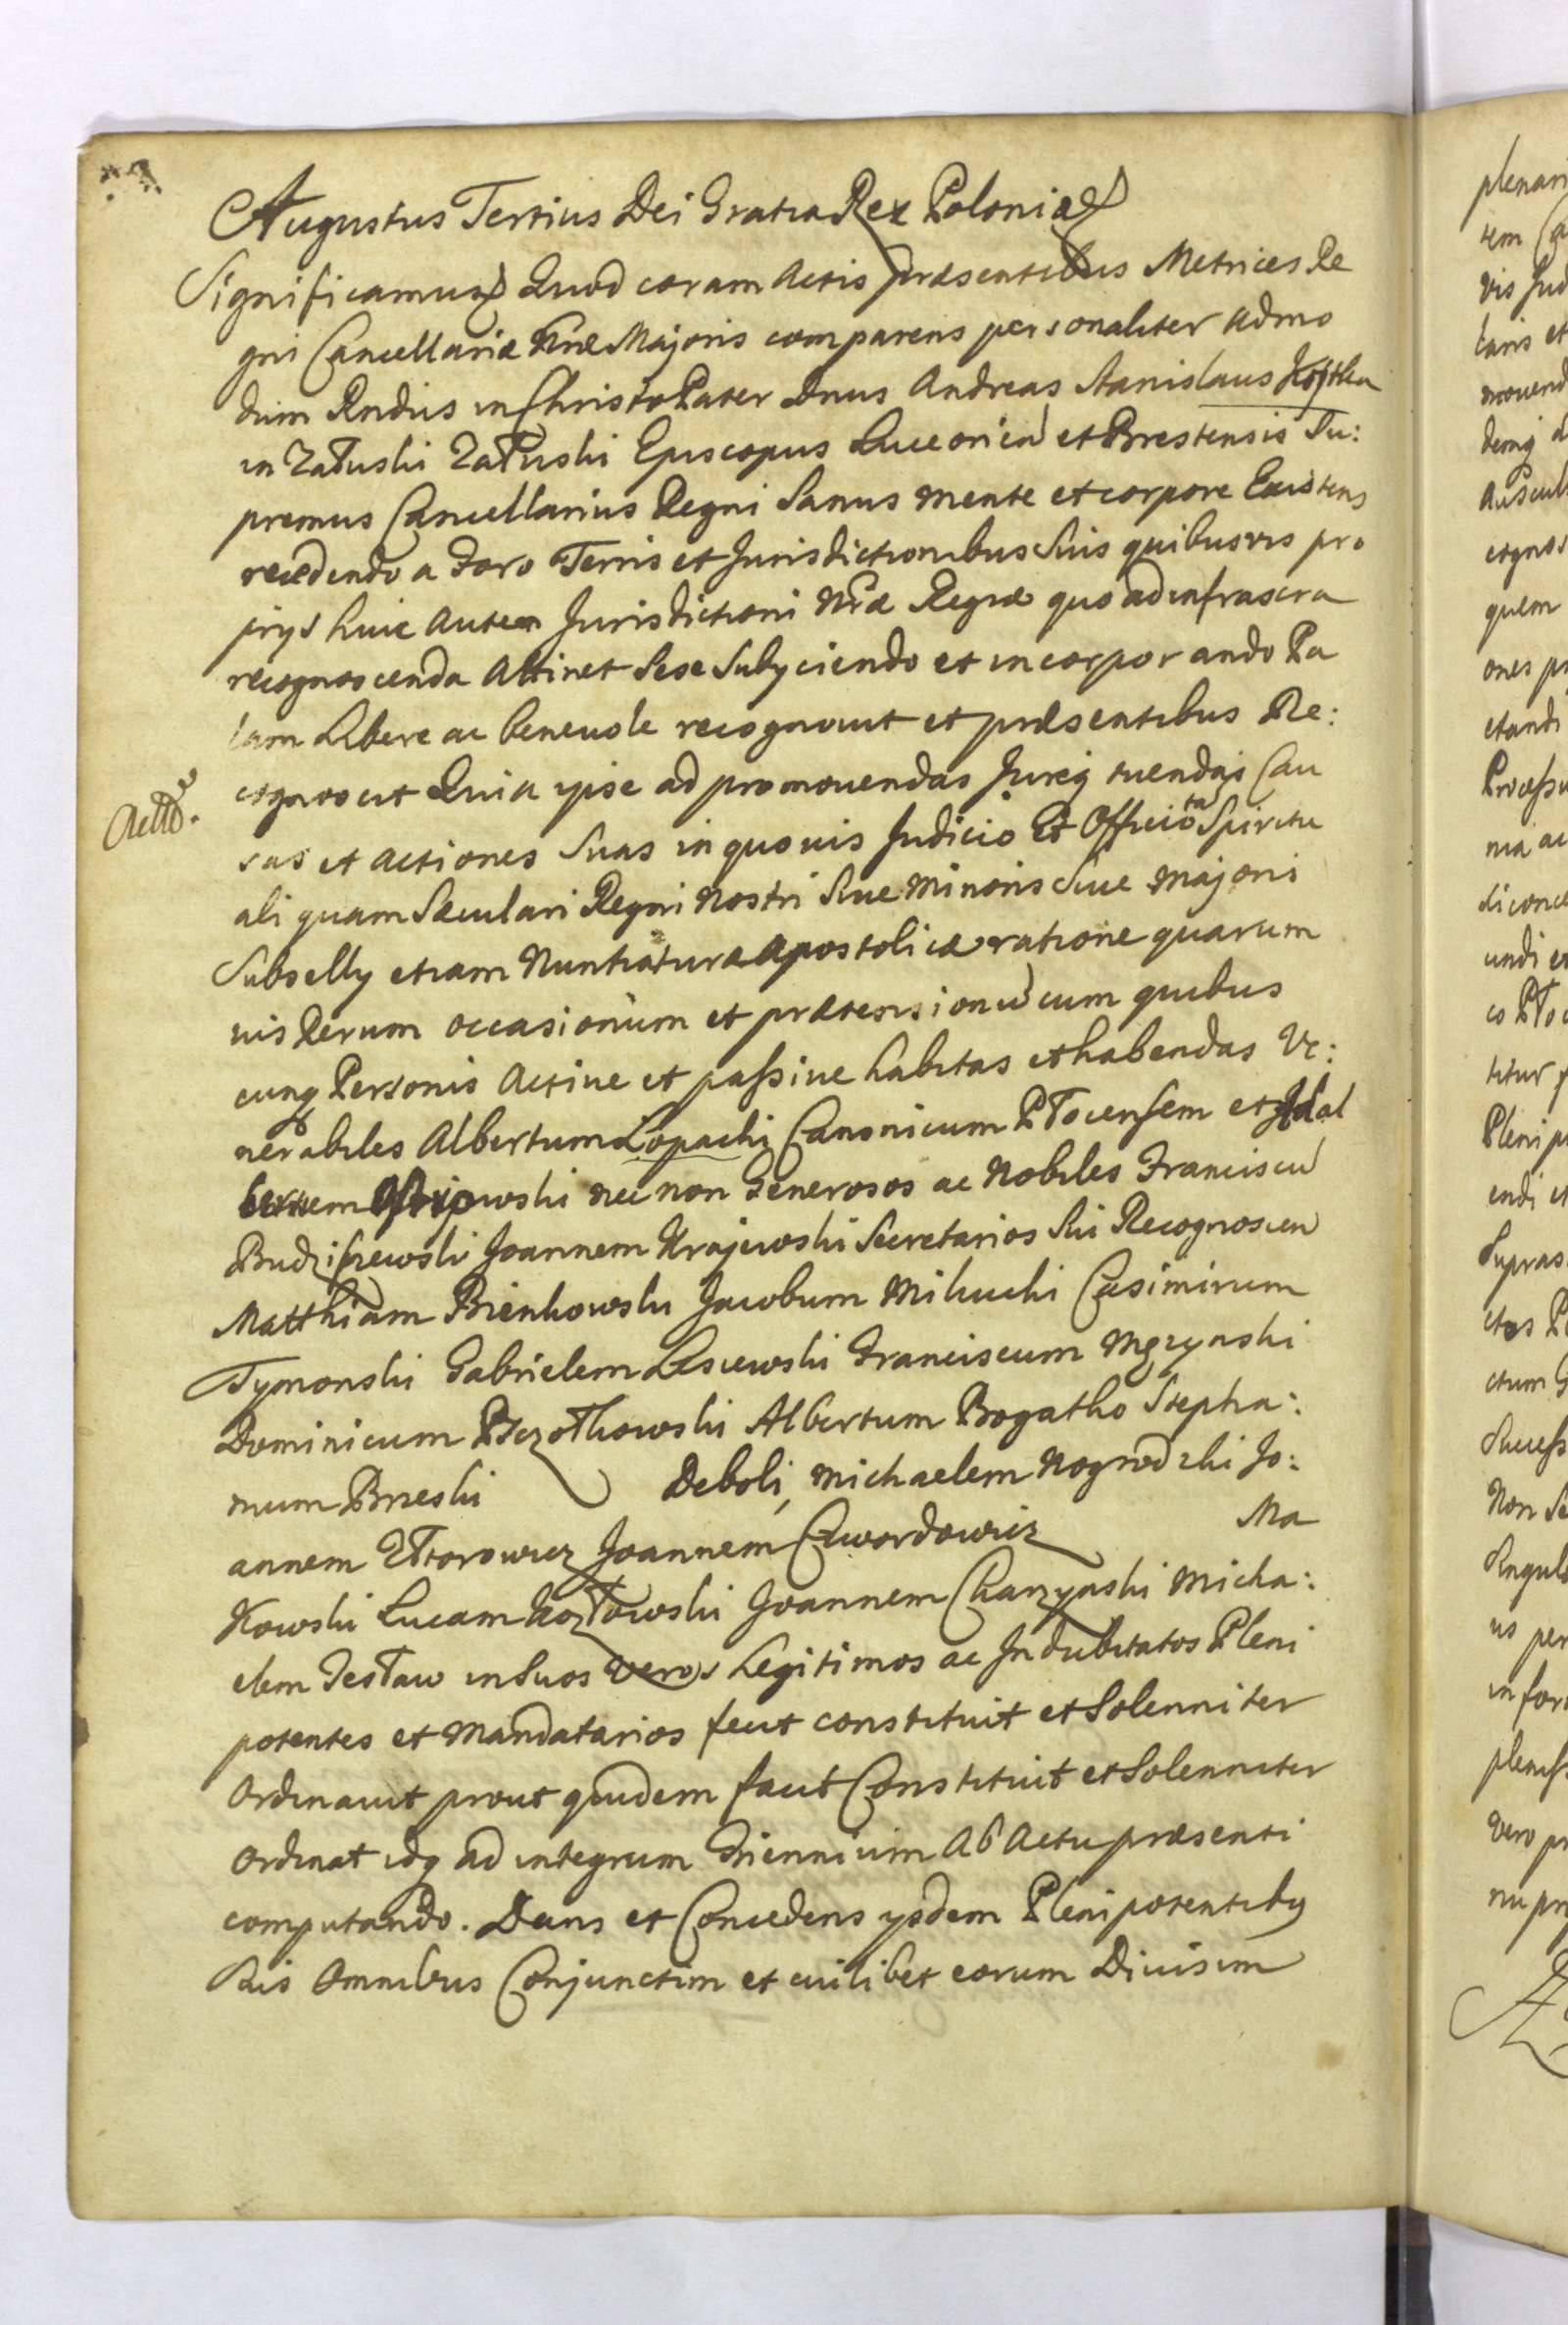 Augustus Tertius Dei Gratia Rex Poloniæ
Significamus Quod coram Actis præsentibus Metrices Re
gni Cancellariæ Nræ Majoris comparens personaliter Admo
dum Rndus in Christo Pater Dnus Andreas Stanislaus Kostka
in Załuski Załuski Episcopus Luceorien et Brestensis Su:
premus Cancellarius Regni Sanus mente et corpore Existens
recedendo a Foro Terris et Jurisdictionibus Suis quibusvis pro
prijs huic autem Jurisdictioni Nræ Regiæ quo ad infrascra
recognoscenda Attinet Sese Subijciendo et incorporando Pa
lam Libere ac benevole recognovit et præsentibus Re:
cognoscit Quia ipse ad promovendas Jureq tuendas Cau
sas et actiones Suas in quovis Judicio Et Officio ta Spiritu
ali quam Sæculari Regni Nostri Sive Minoris Sive Majoris
Subsellij etiam Nuntiaturæ Apostolicæ ratione quarum
vis Rerum occasionum et prætensionu cum quibus
cunq Personis Active et passive habitas et habendas Ve:
nerabiles Albertum Łopacki Canonicum Płocensem et Adal
bertum nec non Generosos ac Nobiles Franciscu
Budziszewski Joannem Krajewski Secretarios Sui Recognoscen
Matthiam Bienkowski Jacobum Milucki Casimirum
Tymonski Gabrielem Lesiewski Franciscum Mgzynski
Dominicum Pszczołkowski Albertum Bogatko Stepha:
num Brzeski Deboli, Michaelem Nogrodzki Jo:
annem Joannem Czwordowicz Ma
Kowski Lucam Kozłowski Joannem Charzynski Micha:
elem Jesław in Suos Veros Legitimos ac Indubitatos Pleni
potentes et Mandatarios fecit constituit et Solenniter
Ordinavit prout quidem facit Constituit et Solenniter
Ordinat idq ad integrum Triennium Ab Actu præsenti
computando. Dans et Concedens ysdem Plenipotentibus
Suis Omnibus Conjunctim et cuilibet eorum Divisim